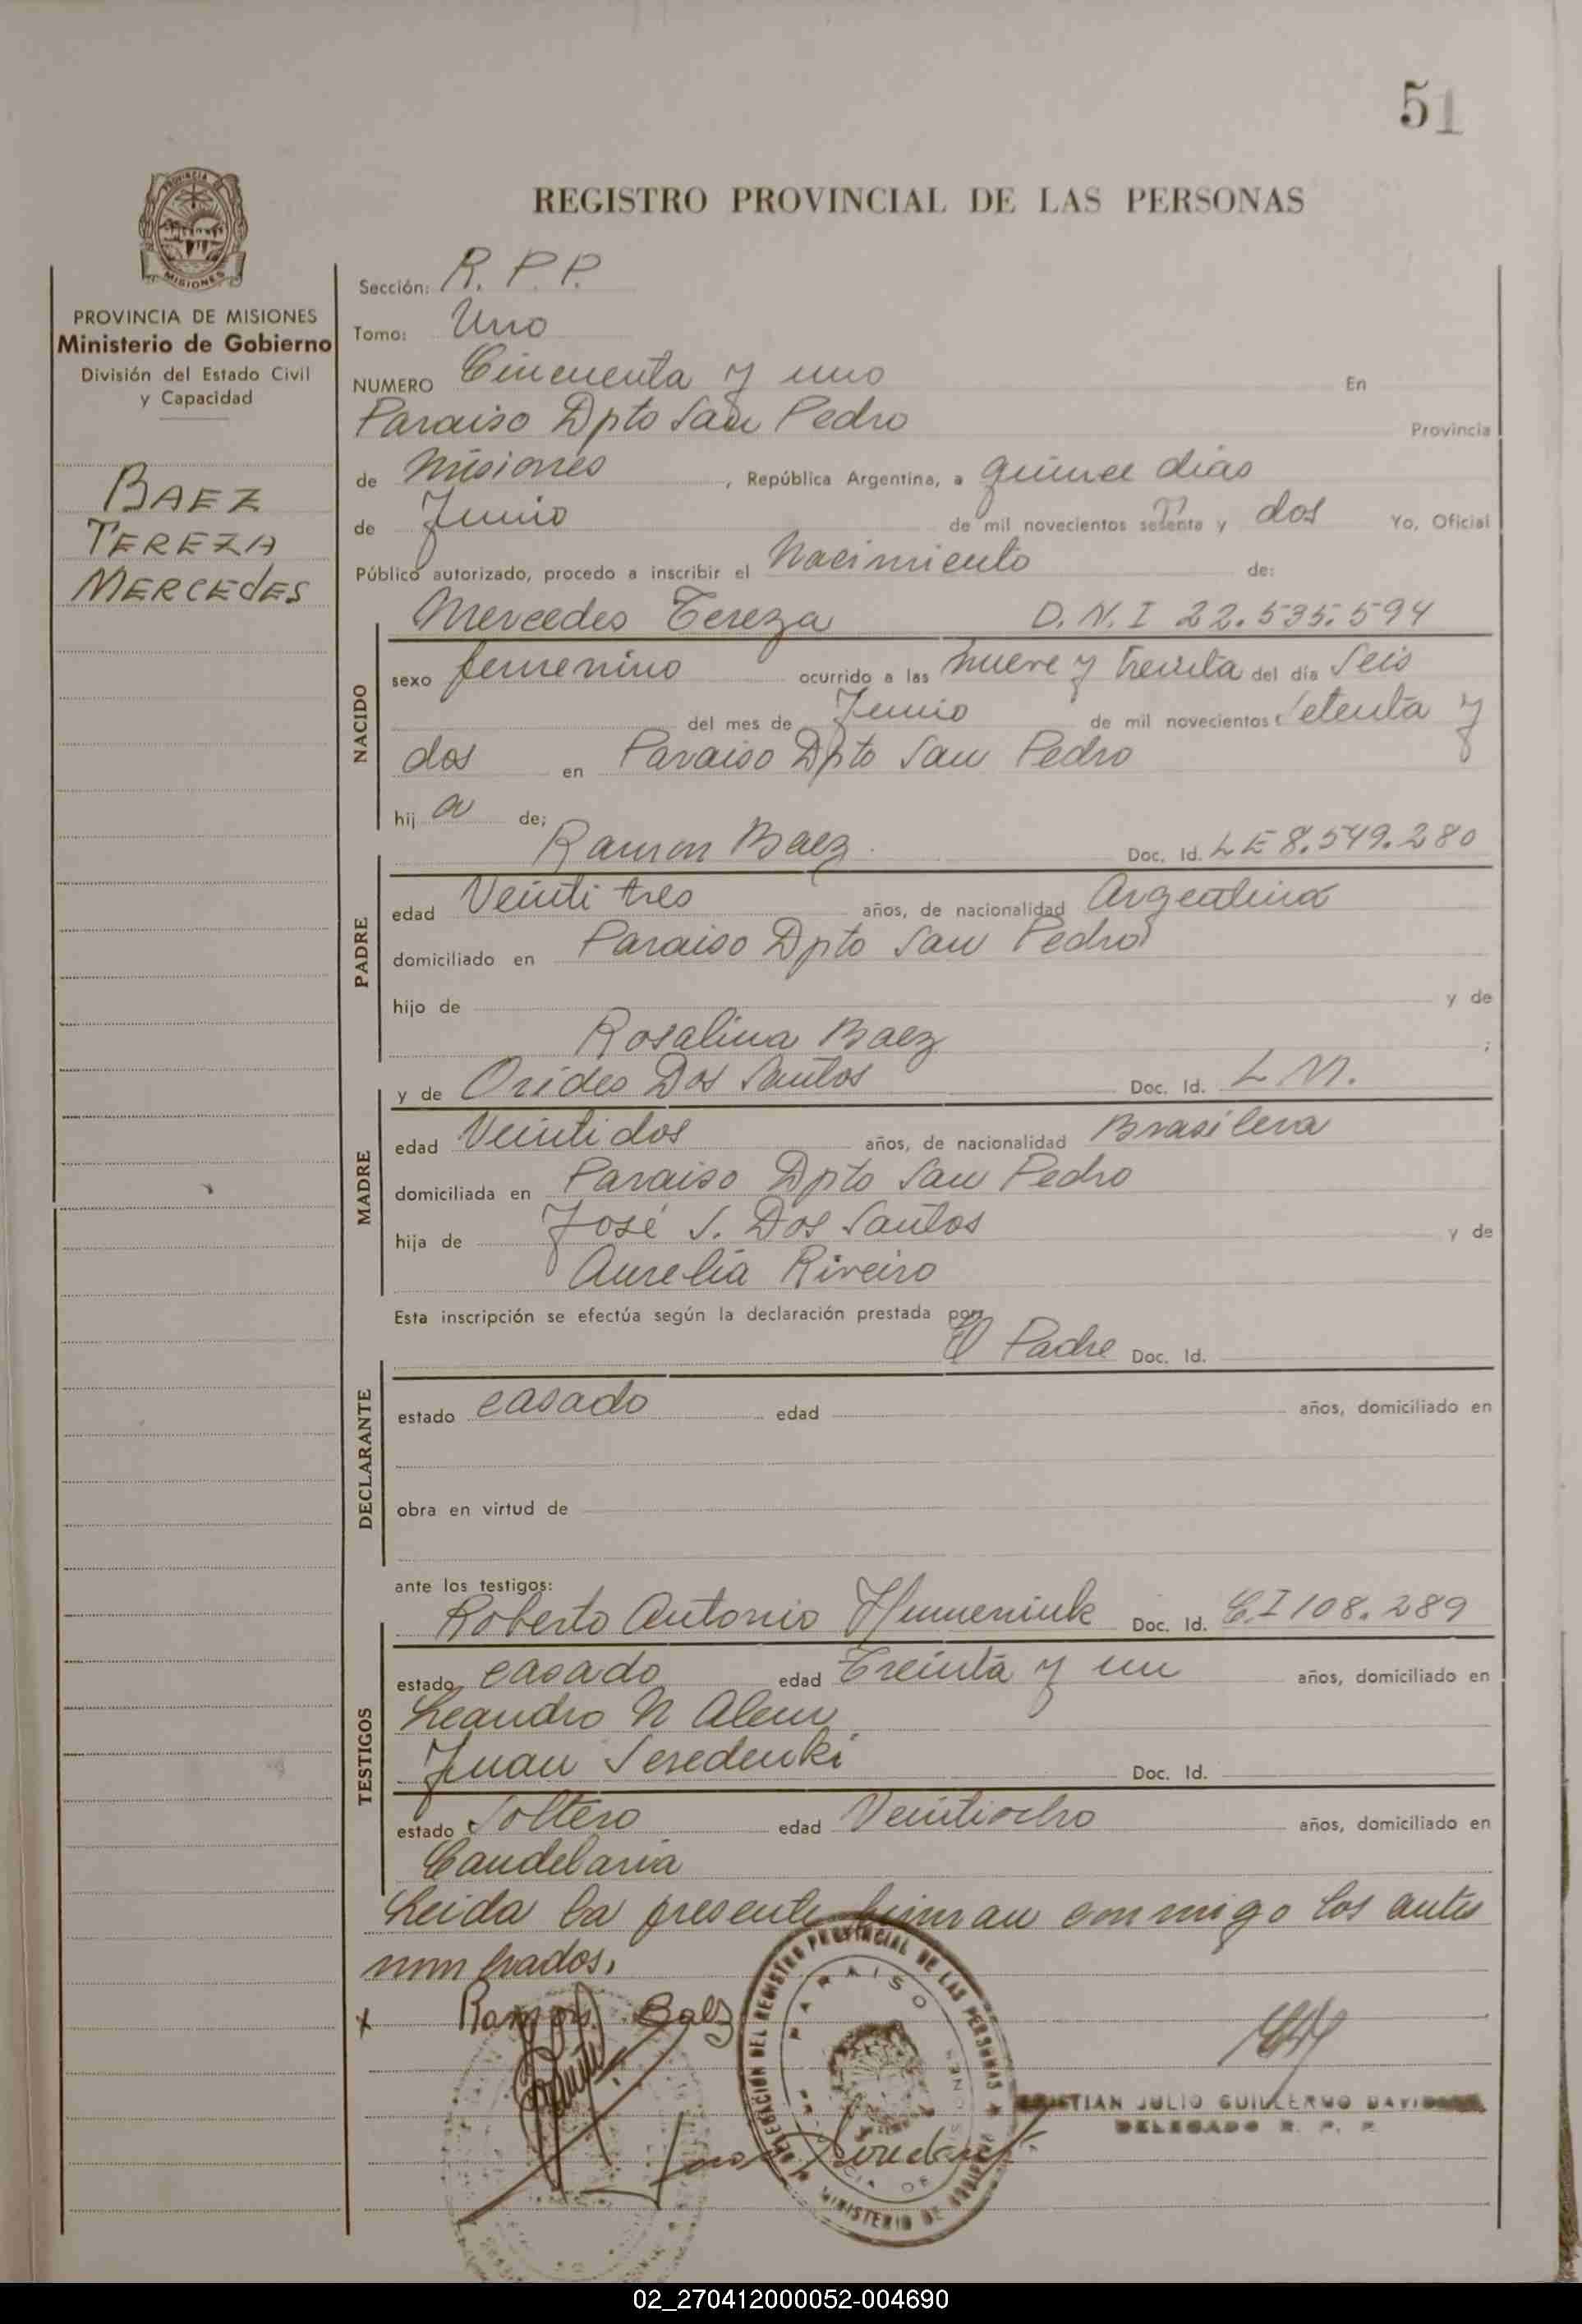 51
REGISTRO PROVINCIAL DE LAS PERSONAS
PROVINCIA DE
MISIONES
PROVINCIA DE MISIONES
Ministerio de Gobierno
División del Estado Civil
y Capacidad
BAEZ
TEREZA
MERCEDES
Sección: R. P. P.
Tomo: Uno
NUMERO Cincuenta y uno En
Paraiso Dpto San Pedro Provincia
de Misiones , República Argentina, a quince dias
de Junio de mil novecientos setenta y dos Yo, Oficial
Público autorizado, procedo a inscribir el Nacimiento de:
Mercedes Tereza D. N. I 22.535.594
NACIDO
sexo femenino ocurrido a las nueve y treinta del día Seis
del mes de Junio de mil novecientos Setenta y
dos en Paraiso Dpto San Pedro
hij a de;
Ramon Baez Doc. Id. L E 8.549.280
PADRE
edad Veinti tres años, de nacionalidad Argentina
domiciliado en Paraiso Dpto San Pedro
hijo de y de
Rosalina Baez ;
y de Orides Dos Santos Doc. Id. L M.
MADRE
edad Veinti dos años, de nacionalidad Brasilera
domiciliada en Paraiso Dpto San Pedro
hija de José S. Dos Santos y de
Aurelia Riveiro
Esta inscripción se efectúa según la declaración prestada por:
El Padre Doc. Id.
DECLARANTE
estado casado edad años, domiciliado en
obra en virtud de
ante los testigos:
Roberto Antonio Humeniuk Doc. Id. C.I 108.289
TESTIGOS
estado casado edad Treinta y un años, domiciliado en
Leandro N Alem
Juan Seredenki Doc. Id.
estado Soltero edad Veintiocho años, domiciliado en
Candelaria
Leida la presente firman conmigo los antes
nombrados.
x Ramon Baez
DELEGACION DEL REGISTRO PROVINCIAL DE LAS PERSONAS
PARAISO
MINISTERIO DE
CRISTIAN JULIO GUILLERMO
DELEGADO R. P. P.
02_270412000052-004690